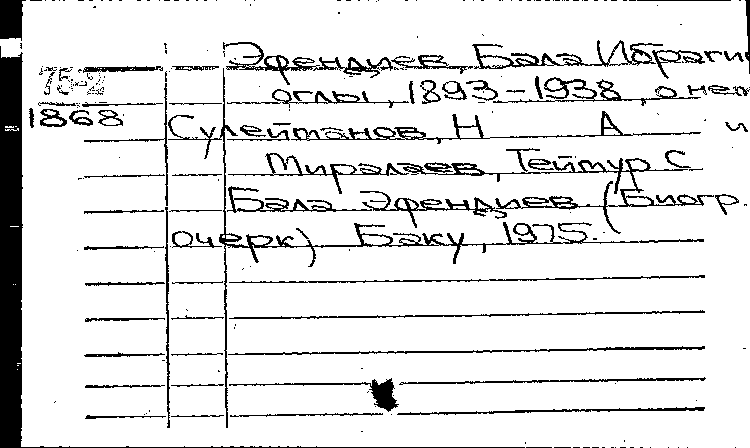 Эфендиев, Бала Ибрагим
75-2
оглы, 1893-1938, о нем
1868
Сулейманов, Н А и
Миралаев, Теймур С
Бала Эфендиев. (Биогр.
очерк) Баку, 1975.